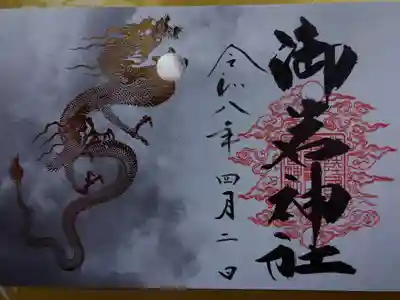 御岩神社
令和八年 四月二日